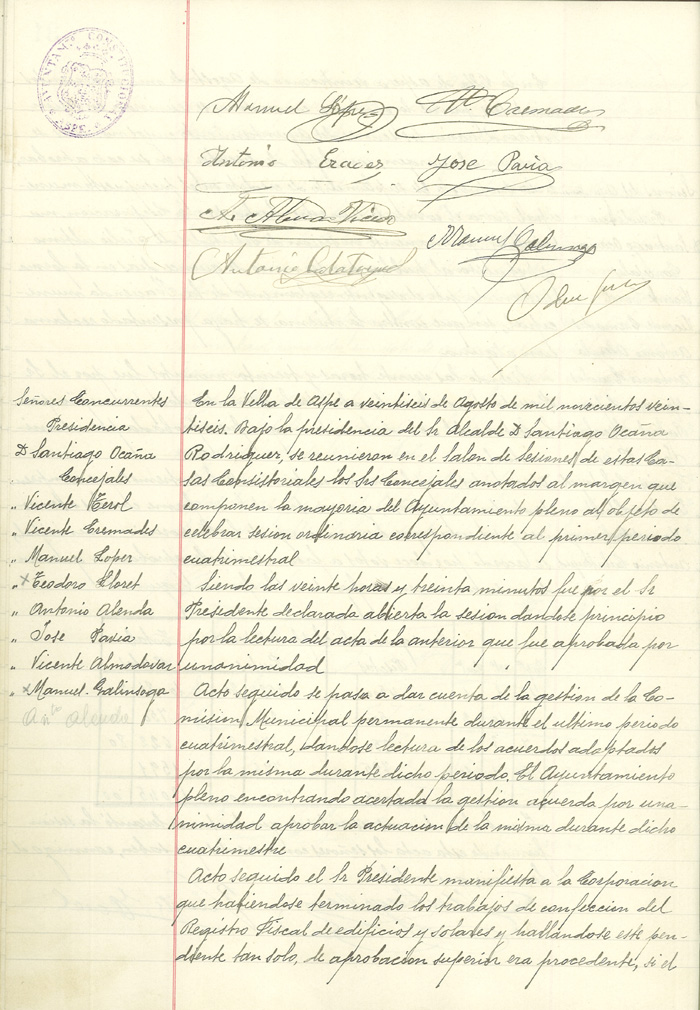 AYUNTAMIENTO CONSTITUCIONAL
ASPE
Manuel López Vte. Cremades
Antonio Erades Jose Pavia
Manuel Galinsoga
Antonio Calatayud
Señores Concurrentes
Presidencia
D Santiago Ocaña
Concejales
„ Vicente Terol
„ Vicente Cremades
„ Manuel Lopez
„ x Teodoro Lloret
„ Antonio Alenda
„ Jose Pavia
„ Vicente Almodovar
„ x Manuel Galinsoga
Anto Alenda
En la Villa de Aspe a veintiseis de Agosto de mil novecientos vein-
tiseis. Bajo la presidencia del Sr Alcalde D Santiago Ocaña
Rodriguez, se reunieron en el salon de sesiones de estas Ca-
sas Consistoriales los Srs Concejales anotados al margen que
componen la mayoria del Ayuntamiento pleno al objeto de
celebrar sesion ordinaria correspondiente al primer periodo
cuatrimestral
Siendo las veinte horas y treinta minutos fue por el Sr
Presidente declarada abierta la sesion dandose principio
por la lectura del acta de la anterior que fue aprobada por
unanimidad
Acto seguido se pasa a dar cuenta de la gestion de la Co-
mision Municipal permanente durante el ultimo periodo
cuatrimestral, dandose lectura de los acuerdos adoptados
por la misma durante dicho periodo. El Ayuntamiento
pleno encontrando acertada la gestion acuerda por una-
nimidad aprobar la actuacion de la misma durante dicho
cuatrimestre
Acto seguido el Sr Presidente manifiesta a la Corporacion
que habiendose terminado los trabajos de confeccion del
Registro Fiscal de edificios y solares y hallandose este pen-
diente tan solo, de aprobacion superior era procedente, si el